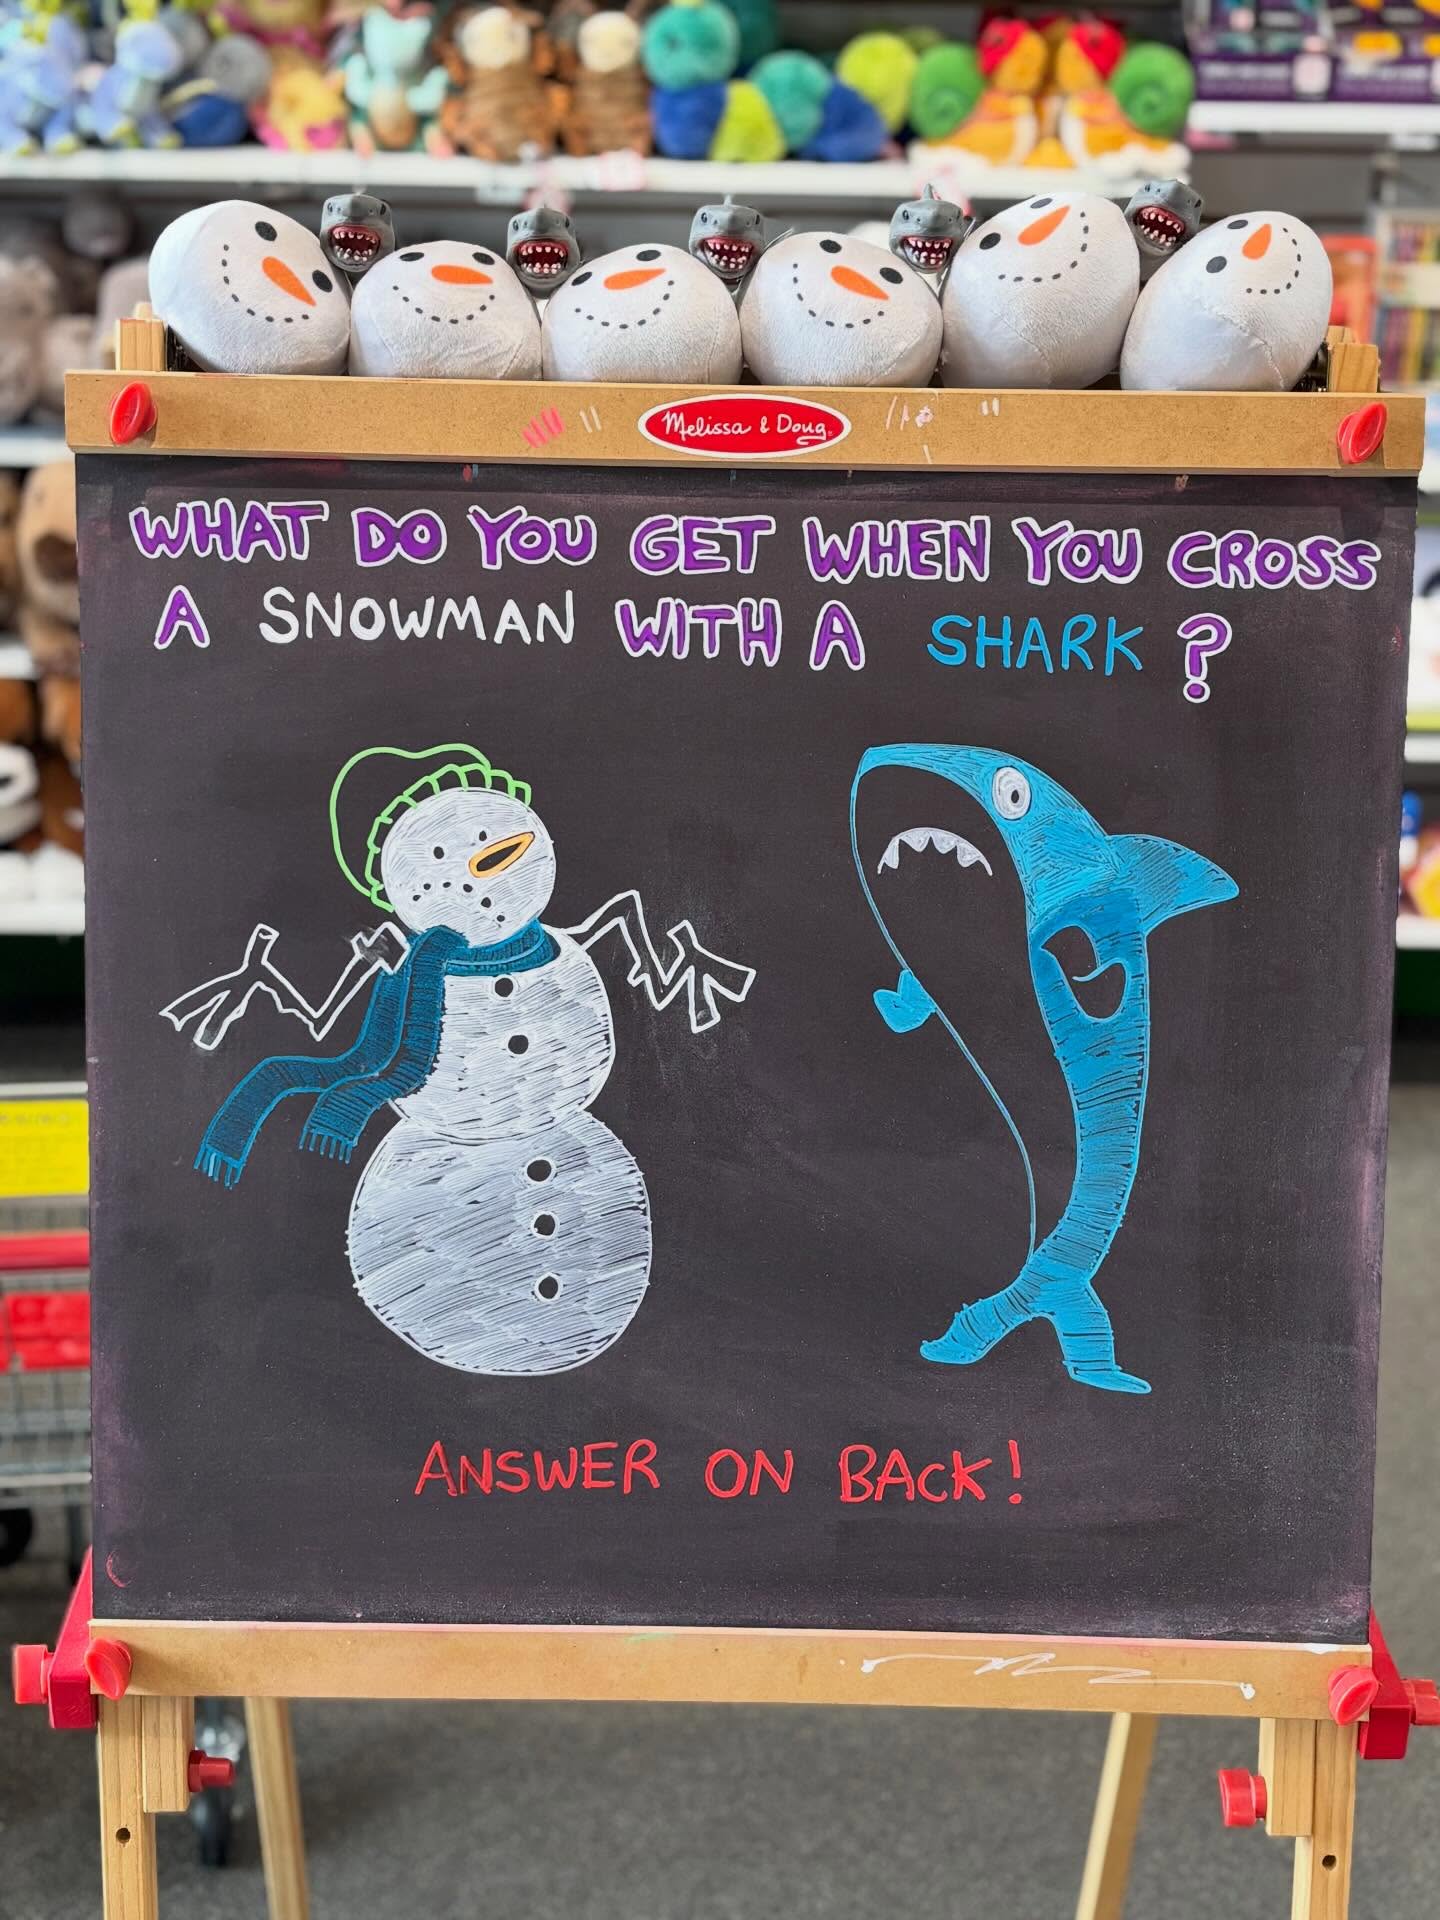 Melissa & Doug
WHAT DO YOU GET WHEN YOU CROSS
A SNOWMAN WITH A SHARK?
ANSWER ON BACK!